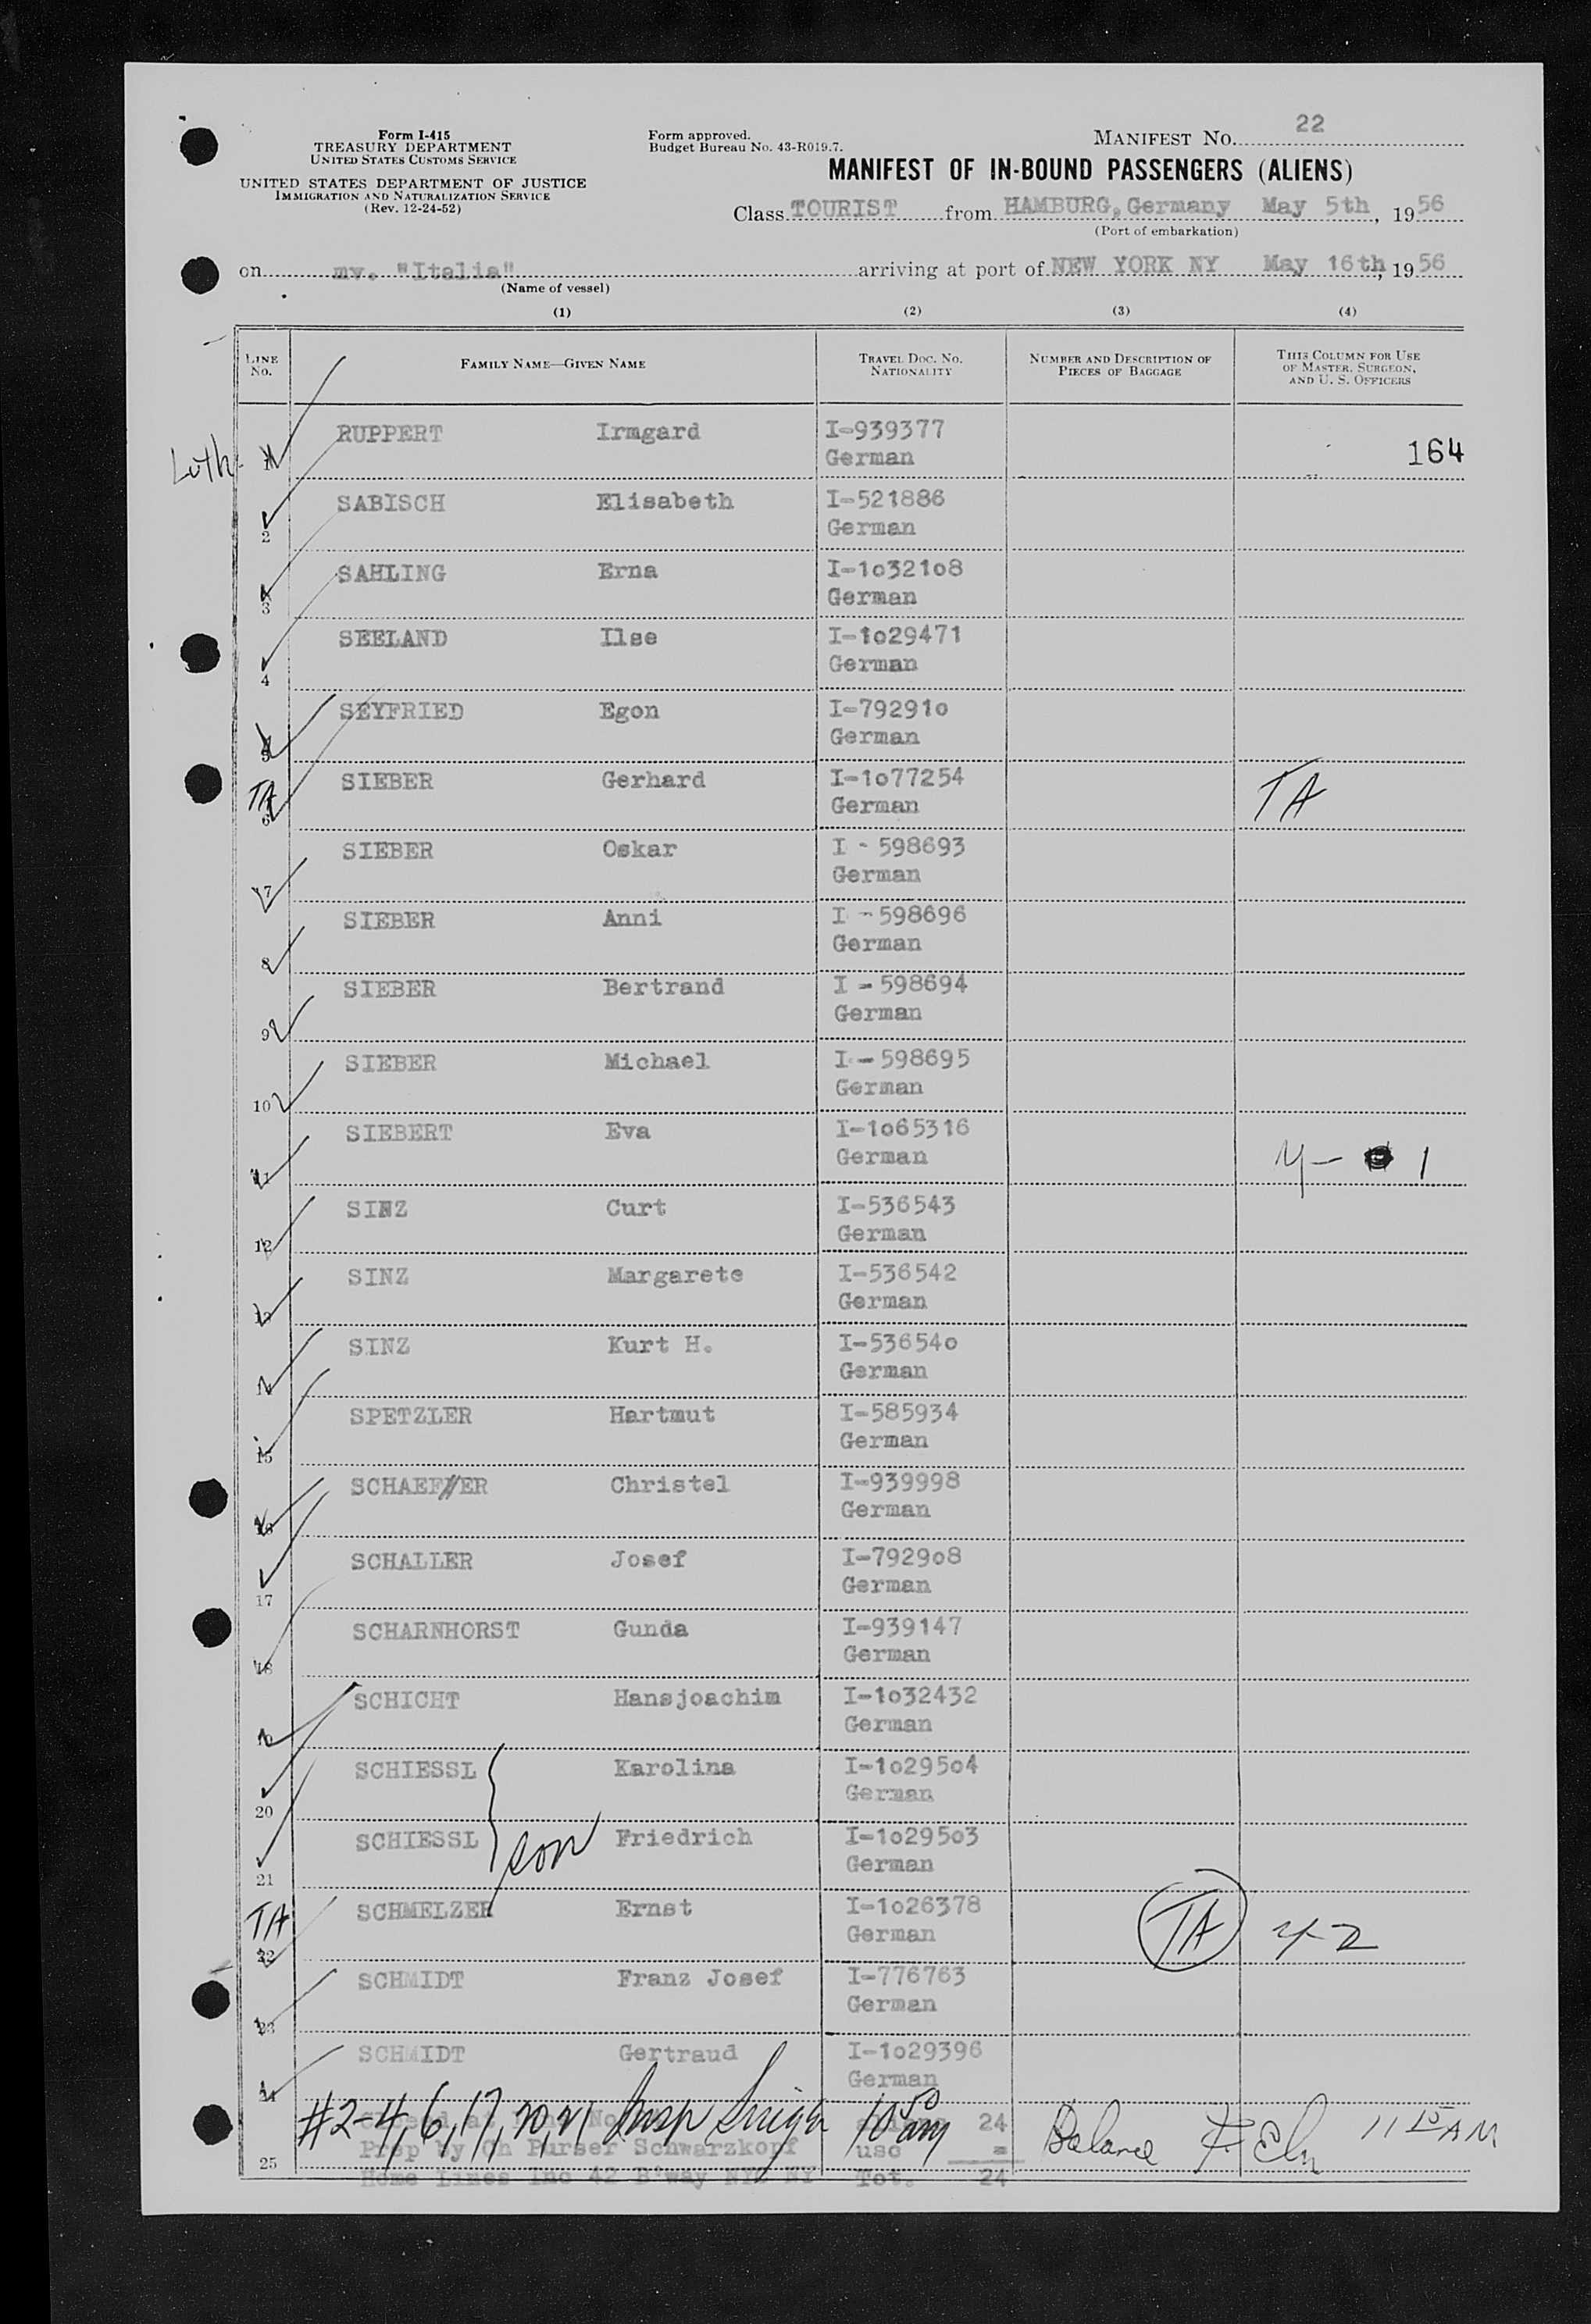 Form I-415
TREASURY DEPARTMENT
UNITED STATES CUSTOMS SERVICE
UNITED STATES DEPARTMENT OF JUSTICE
IMMIGRATION AND NATURALIZATION SERVICE
(Rev. 12-24-52)
Form approved.
Budget Bureau No. 43-R019.7.
MANIFEST NO. 22
MANIFEST OF IN-BOUND PASSENGERS (ALIENS)
Class TOURIST from HAMBURG, Germany May 5th, 1956
(Port of embarkation)
on mv. "Italia" arriving at port of NEW YORK NY May 16th, 1956
(Name of vessel)
(1) (2) (3) (4)
LINE No. FAMILY NAME—GIVEN NAME TRAVEL DOC. NO. NATIONALITY NUMBER AND DESCRIPTION OF PIECES OF BAGGAGE THIS COLUMN FOR USE OF MASTER, SURGEON, AND U. S. OFFICERS
Luth. 1 RUPPERT Irmgard I-939377 German 164
2 SABISCH Elisabeth I-521886 German
3 SAHLING Erna I-1032108 German
4 SEELAND Ilse I-1029471 German
5 SEYFRIED Egon I-792910 German
TA 6 SIEBER Gerhard I-1077254 German TA
7 SIEBER Oskar I - 598693 German
8 SIEBER Anni I - 598696 German
9 SIEBER Bertrand I - 598694 German
10 SIEBER Michael I - 598695 German
11 SIEBERT Eva I-1065316 German 1
12 SINZ Curt I-536543 German
13 SINZ Margarete I-536542 German
SINZ Kurt H. I-536540 German
15 SPETZLER Hartmut I-585934 German
16 SCHAEFER Christel I-939998 German
17 SCHALLER Josef I-792908 German
18 SCHARNHORST Gunda I-939147 German
19 SCHICHT Hansjoachim I-1032432 German
20 SCHIESSL Karolina I-1029504 German
21 SCHIESSL son Friedrich I-1029503 German
TA 22 SCHMELZER Ernst I-1026378 German TA
23 SCHMIDT Franz Josef I-776763 German
24 SCHMIDT Gertraud I-1029396 German
#2-4, 6, 17, 20, 21 Insp 10 50 am 24 Balance 11 15 AM
25 Prep by Ch Purser Schwarzkopf usc =
Home Lines Inc 42 B'way NYC NY Tot. 24